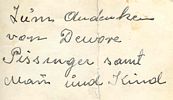 Zum Andenken
von Dewore
Pissinger samt
Mann und Kind